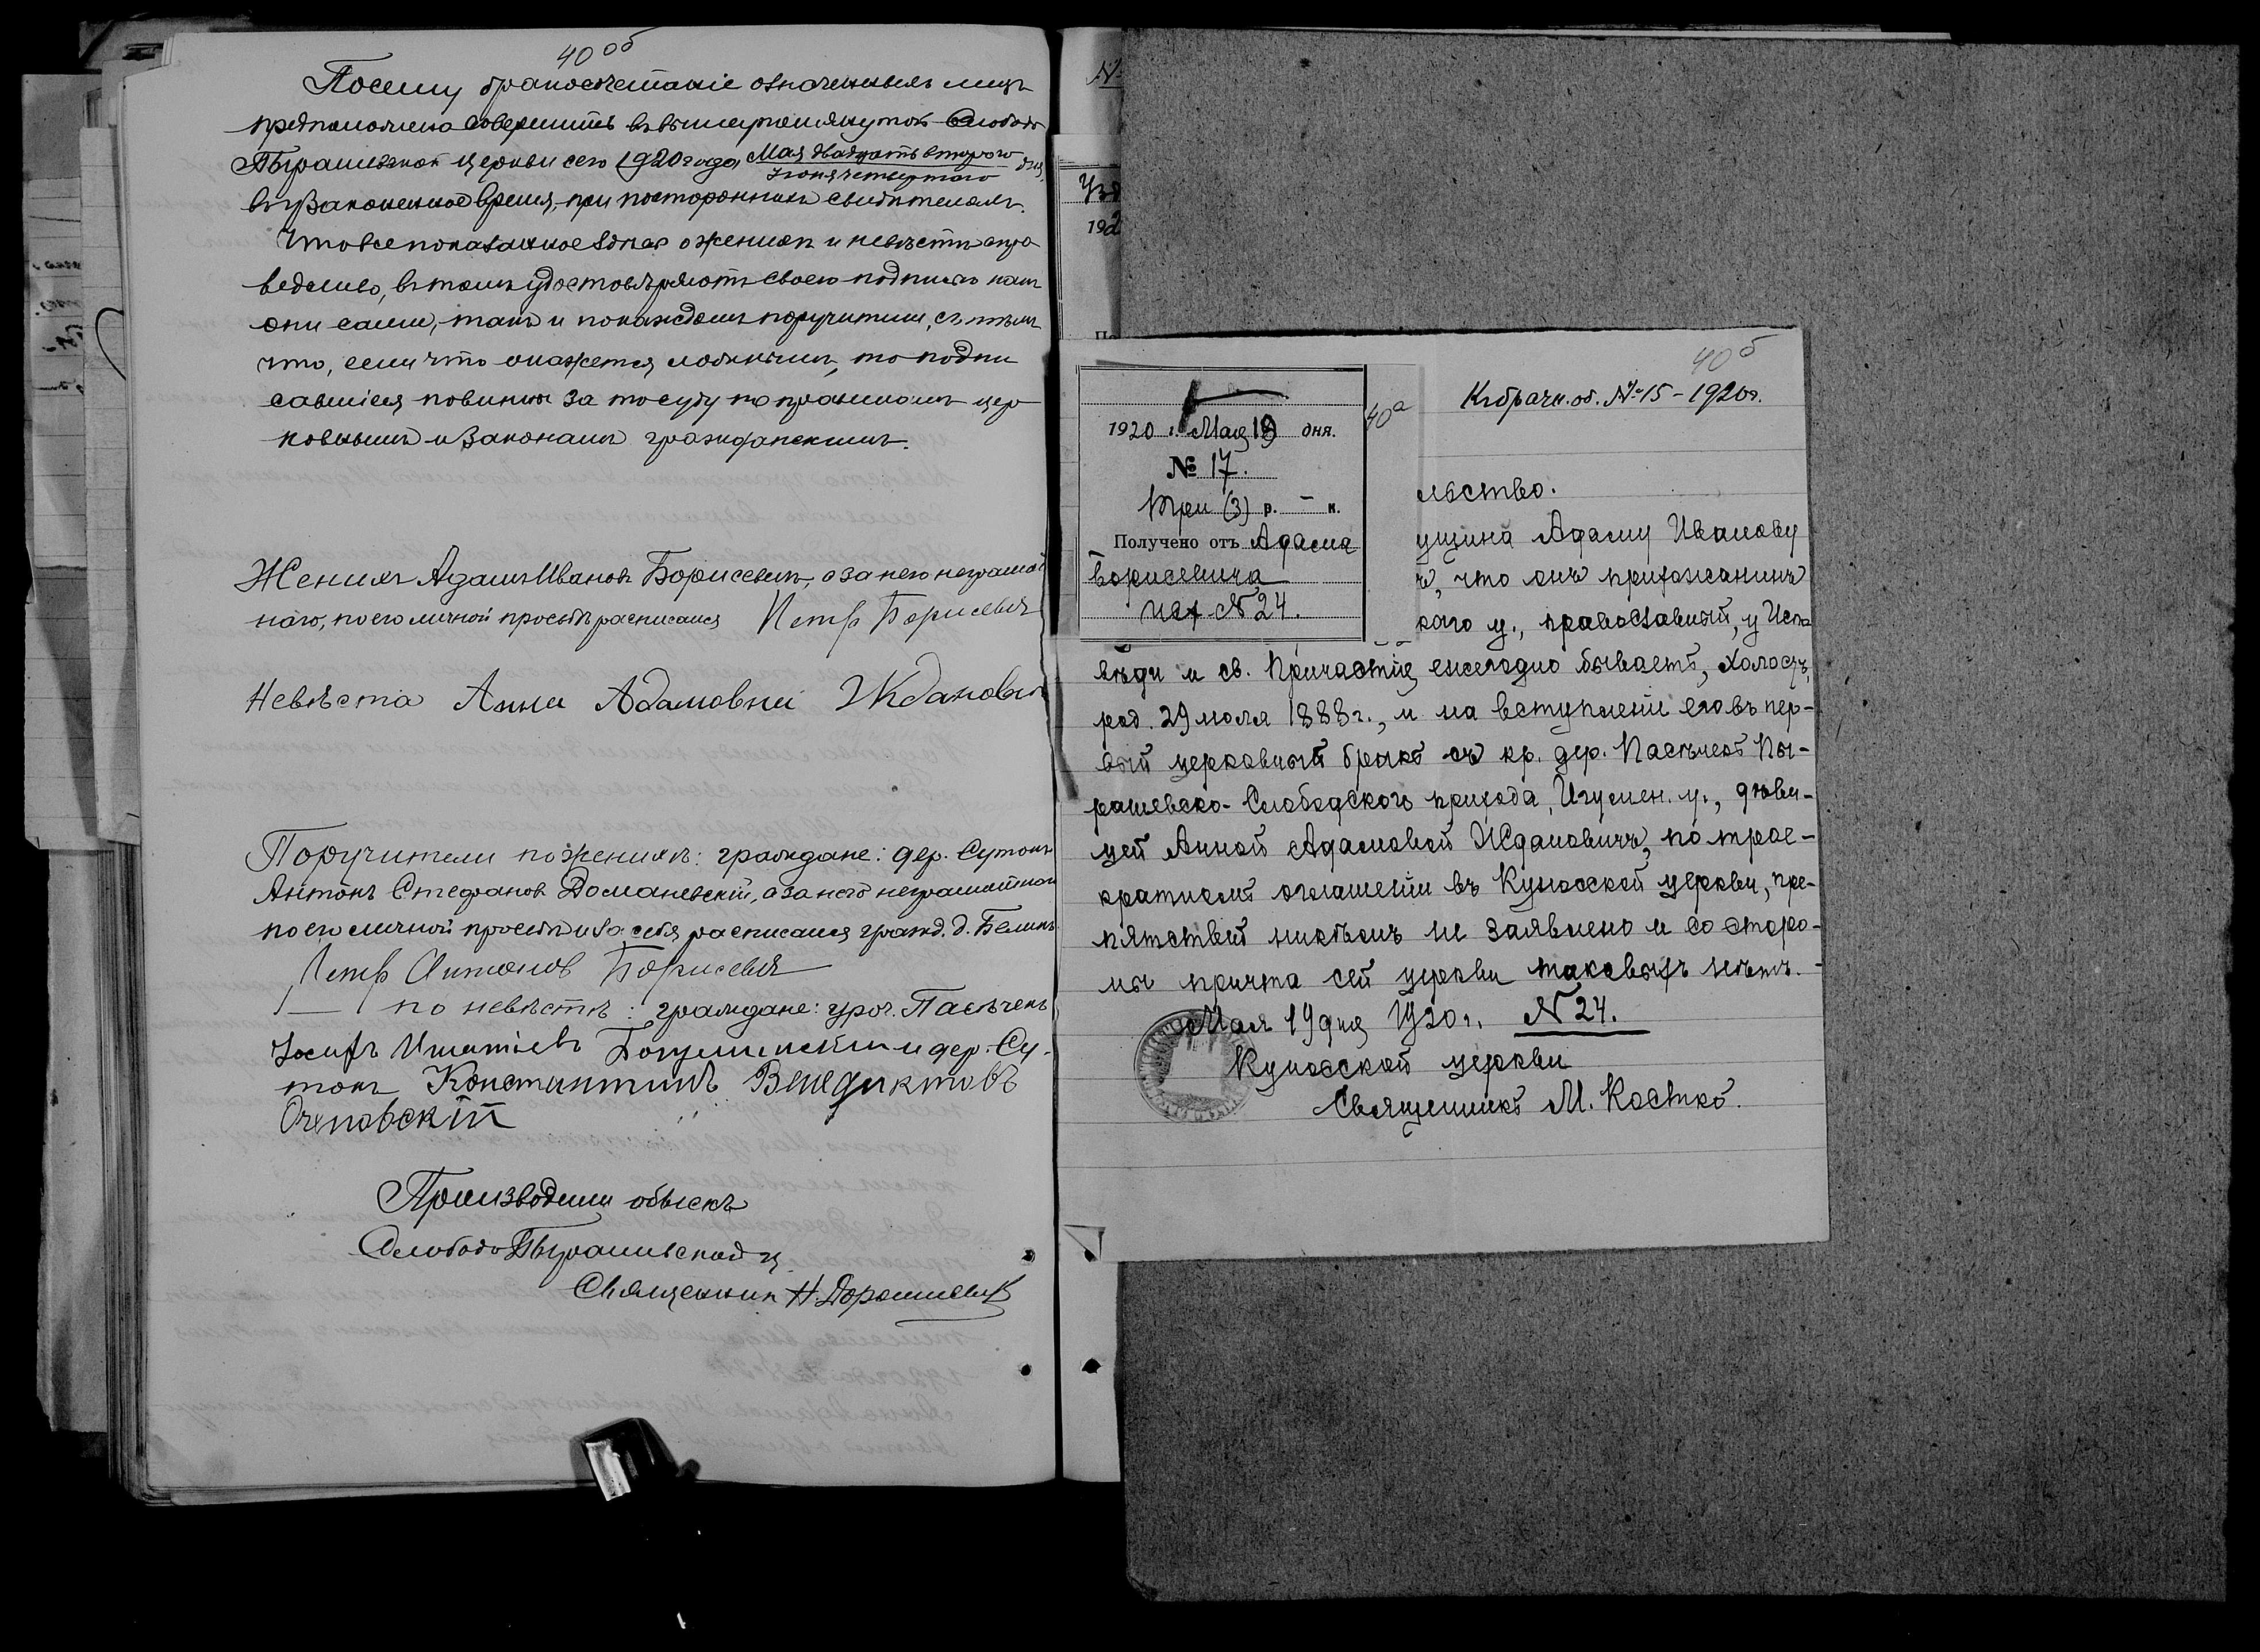 40 об
Посему бракосочетаніе означенныхъ лицъ
предположено совершить въ вышеупомянутой Слободо
Пырашевской церкви сего 1920 года Мая двадцать второго дня
Іюня четвертого
въ узаконенное время, при постороннихъ свидѣтеляхъ.
Что все показанное здѣсь о женихѣ и невѣстѣ спра
ведливо, въ томъ удостовѣряютъ своею подписью какъ
они сами, такъ и по каждомъ поручители, съ тѣмъ
что, если что окажется ложнымъ, то подпи
савшіеся повинны за то суду по правиламъ цер
ковнымъ и законамъ гражданскимъ.
Женихъ Адамъ Ивановъ Борисевичъ, а за него неграмот
наго, по его личной просьбѣ расписался Петръ Борисевич
Невѣста Анна Адамовна Жданович
Поручители по женихѣ: граждане: дер. Сутокъ
Антонъ Стефановъ Доманевскій, а за него неграмотного
по его личной просьбѣ и за себя расписался гражд. д. Белинъ
Петр Антонов Борисевич
— по невѣстѣ: граждане: уроч. Пасѣчекъ
Іосифъ Игнатіевъ и дер. Су-
токъ Константинъ Венедиктовъ
Очеповскій
Производили обыскъ
Слободо Пырашевской ц.
Священник Н. Дорошевич
1920 г. Мая 19 дня.
№ 17.
Три (3) р. — к.
Получено отъ Адама
Борисевича
на № 24.
40а
40 б
Къ брачн. об. № 15 - 1920 г.
льство.
ущина Адаму Иванову
ъ, что онъ прихожанинъ
каго у., православный, у Испо
вѣди и св. Причастія ежегодно бываетъ, холостъ,
род. 29 іюля 1888 г., и на вступленіе его въ пер-
вый церковный бракъ съ кр. дер. Пасѣчекъ Пы-
рашевско-Слободского прихода, Игумен. у., дѣви-
цей Анной Адамовой Ждановичъ, по трое-
кратномъ оглашеніи въ Куносской церкви, пре-
пятствій никѣмъ не заявлено и со сторо-
ны причта сей церкви таковыхъ нѣтъ.-
Мая 19 дня 1920 г. № 24.
Куносской церкви
Священникъ М. Костко.